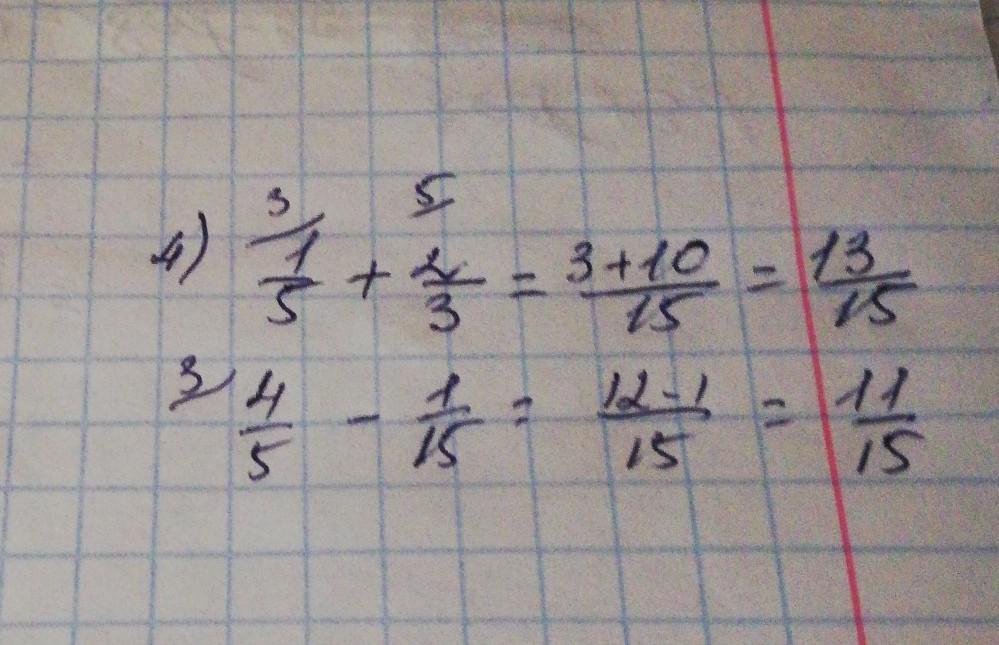 3 5
4) 1/5 + 2/3 = 3+10/15 = 13/15
3 4/5 - 1/15 = 12-1/15 = 11/15